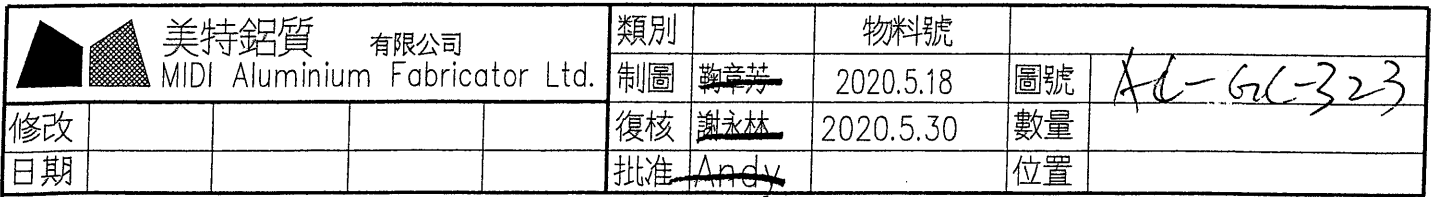 美特鋁質 有限公司
MIDI Aluminium Fabricator Ltd.
類別 物料號
制圖 鞠章芳 2020.5.18 圖號 AC-GC-323
修改 復核 謝永林 2020.5.30 數量
日期 批准 Andy 位置